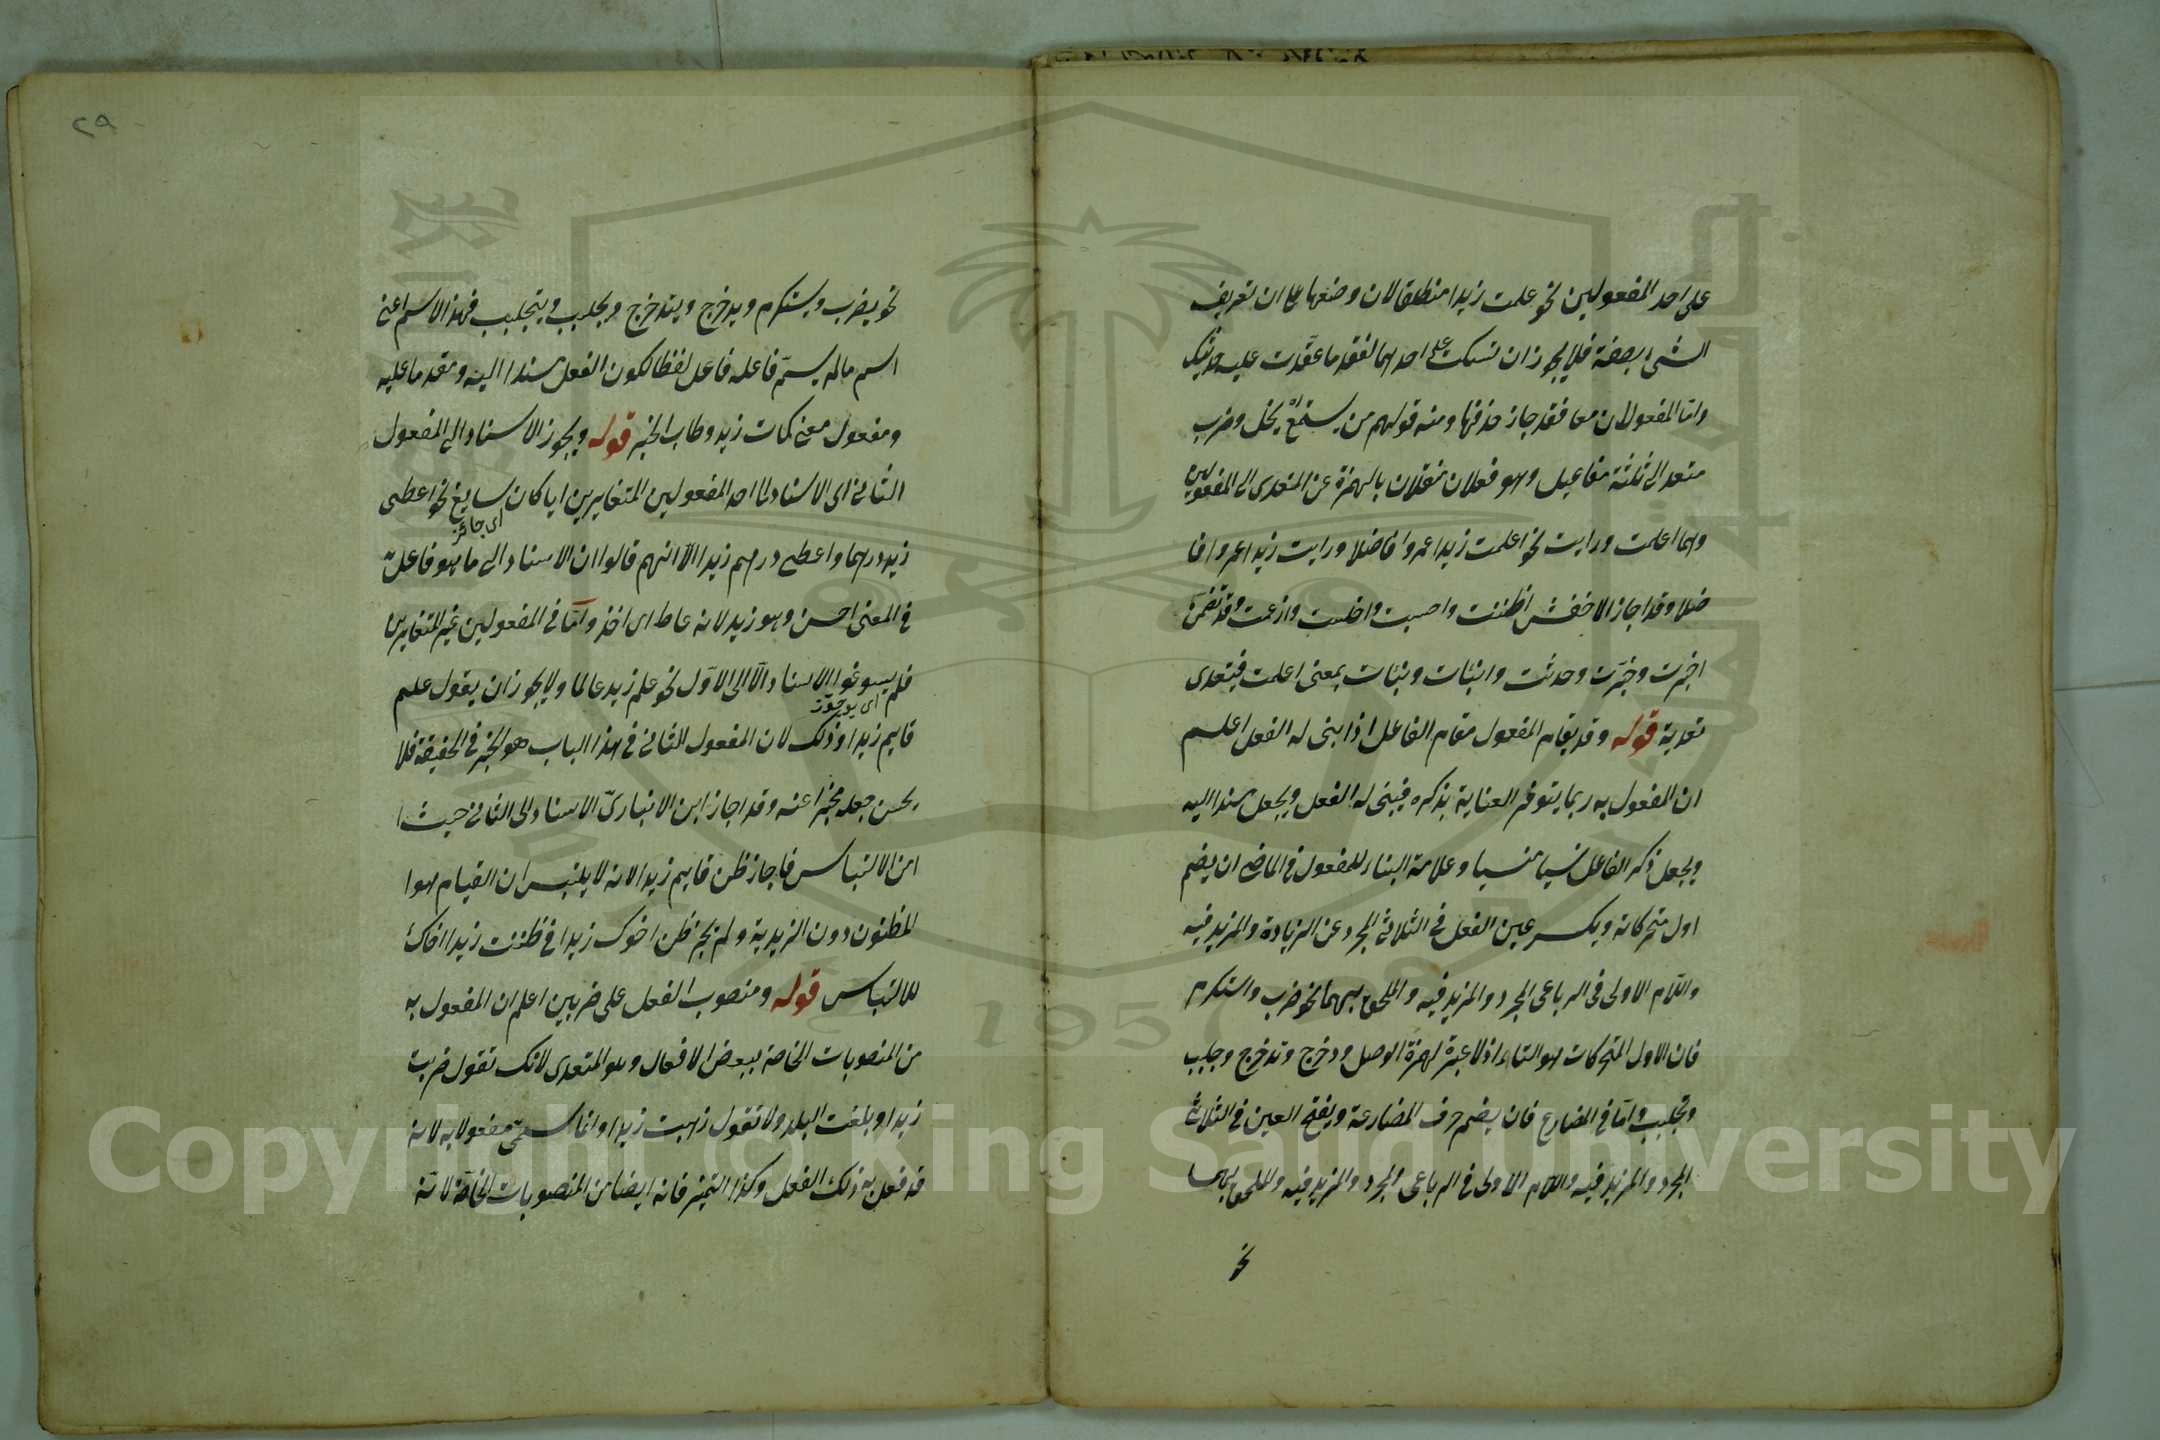 على احد المفعولين نحو علمت زيدا منطلقا لان وضعها على ان تعريف
الشئ بصفة فلا يجوز ان تسكت على احدهما لفقد ما عقدت عليه حديثك
واما المفعولان معا فقد جاز حذفها ومنه قولهم من يسمع يخل وضرب
متعد الى ثلثة مفاعيل وهو فعلان منقلان بالهمزة عن المتعدى الى المفعولين
وهما اعلمت ورايت نحو اعلمت زيدا عمروا فاضلا ورايت زيدا عمروا فا
ضلا وقد اجاز الاخفش اظننت واحسبت واخلت وازعمت وقد تضمن
اخبرت وخبرت وحدثت وانبئات ونبئات بمعنى اعلمت فيتعدى
تعديته قوله وقد يقام المفعول مقام الفاعل اذا بنى له الفعل اعلم
ان المفعول به ربما يتوفر العناية بذكره فيبنى له الفعل ويجعل مسندا اليه
ويجعل ذكر الفاعل نسيا منسيا وعلامة البناء للمفعول فى الماضى ان يضم
اول متحركاته ويكسر عين الفعل فى الثلاثى المجرد عن الزيادة والمزيد فيه
واللام الاولى فى الرباعى المجرد والمزيد فيه والملحق بهما نحو ضرب واستكرم
فان الاول المتحركات هو التاء اذ لا عبرة لهمزة الوصل ودحرج وتدحرج وجلبب
وتجلبب واما فى المضارع فان يضم حرف المضارعة ويفتح العين فى الثلاثى
المجرد والمزيد فيه واللام الاولى فى الرباعى المجرد والمزيد فيه والملحق بهما
نحو
٢٩
نحو يضرب ويستكرم ويدحرج ويتدحرج ويجلبب ويتجلبب فهذا الاسم اعنى
اسم ما لم يسم فاعله فاعل لفظا لكون الفعل مسندا اليه ومقدما عليه
ومفعول معنى كمات زيد وطاب الخبر قوله ويجوز الاسناد الى المفعول
الثانى اى الاسناد الى احد المفعولين المتغايرين ايا كان سايغ نحو اعطى
اى جائز
زيد درهما واعطى درهم زيدا الا انهم قالوا ان الاسناد الى ما هو فاعل
فى المعنى احسن وهو زيد لانه عاط اى اخذ واما فى المفعولين غير المتغايرين
فلم يسوغوا الاسناد الا الى الاول نحو علم زيد عالما ولا يجوز ان يقول علم
اى يجوز
قايم زيدا وذلك لان المفعول الثانى فى هذا الباب هو الخبر فى الحقيقة فلا
يحسن جعله مخبرا عنه وقد اجاز ابن الانبارى الاسناد الى الثانى حيث ا
امن الالتباس فاجاز ظن قايم زيدا لانه لا يلتبس ان القيام هو ا
المظنون دون الزيدية ولم يجز ظن اخوك زيدا فى ظننت زيدا اخاك
للالتباس قوله ومنصوب الفعل على ضربين اعلم ان المفعول به
من المنصوبات الخاصة ببعض الافعال وهو المتعدى لانك تقول ضربت
زيدا وبلغت البلد ولا تقول ذهبت زيدا وانما سمى مفعولا به لانه
قد فعل به ذلك الفعل وكذا التميز فانه ايضا من المنصوبات الخاصة لانه
Copyright © King Saud University
1957